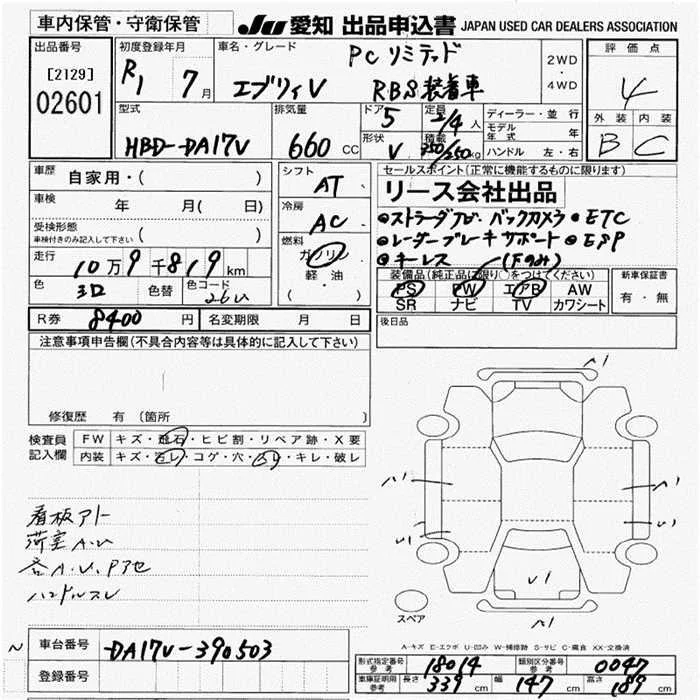 車内保管・守衛保管
JU 愛知 出品申込書 JAPAN USED CAR DEALERS ASSOCIATION
出品番号
[2129]
02601
初度登録年月
R1 7月
車名・グレード
PCリミテッド
エブリイV RBS装着車
2WD
・
4WD
評価点
4
外装 内装
B C
型式
HBD-DA17V
排気量
660 cc
ドア 5
形状 V
定員 2/4 人
積載 350/250 kg
ディーラー・並行
モデル年式 年
ハンドル 左・右
車歴 自家用・( )
車検 年 月( 日)
受検形態
車検付きのみ記入して下さい ( )
走行 10万9千819km
色 シロ 色替 色コード 26U
シフト AT
冷房 AC
燃料
ガソリン
軽油
( ・ )
セールスポイント(正常に機能するものに限ります)
リース会社出品
●ストラーダナビ バックカメラ ●ETC
●レーダーブレーキサポート ●ESP
●キーレス (下のみ)
装備品(純正品に限り○をつけてください)
PS PW エアB AW
SR ナビ TV カワシート
新車保証書
有・無
R券 8400 円 名変期限 月 日
後日品
注意事項申告欄(不具合内容等は具体的に記入して下さい)
修復歴 有(箇所 )
検査員記入欄
FW キズ・飛石・ヒビ割・リペア跡・X要
内装 キズ・ヨゴレ・コゲ・穴・スレ・キレ・破レ
看板アト
荷室A.U
各A.U、Pアセ
ハンドルスレ
A1
A1
A1
U1
U1
U1
A1
スペア
A-キズ E-エクボ U-凹み W-補修跡 S-サビ C-腐食 XX-交換済
車台番号 DA17V-390503
登録番号
形式指定番号 参考 18014 類別区分番号 参考 0047
車庫証明用 参考 長さ 339 cm 幅 147 cm 高さ 189 cm